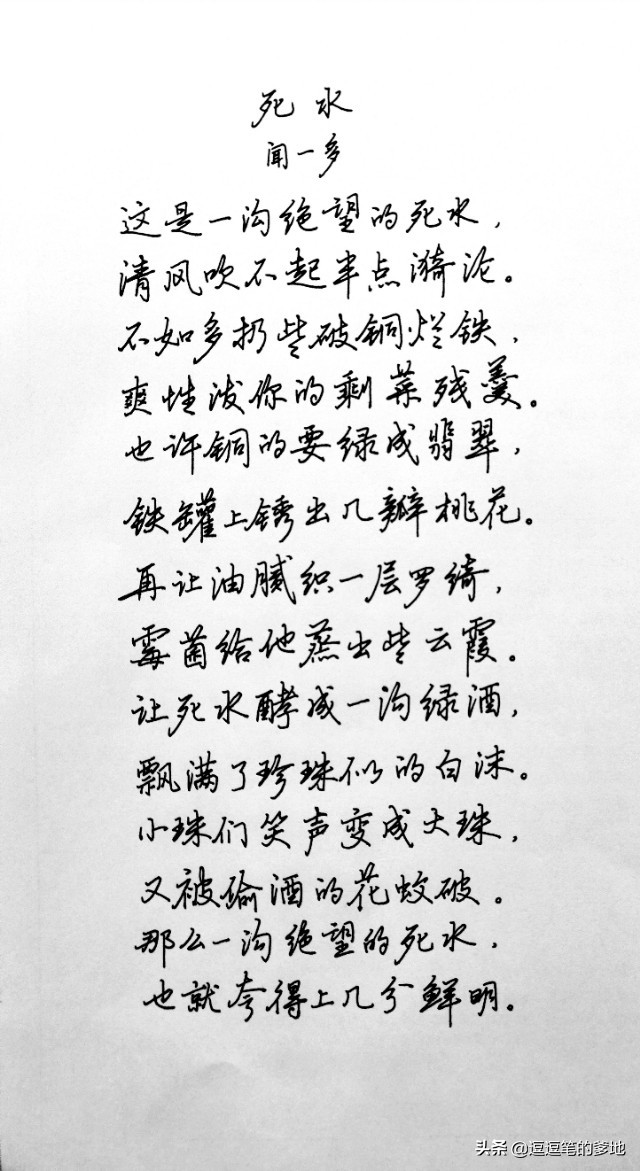 死水
闻一多
这是一沟绝望的死水，
清风吹不起半点漪沦。
不如多扔些破铜烂铁，
爽性泼你的剩菜残羹。
也许铜的要绿成翡翠，
铁罐上锈出几瓣桃花。
再让油腻织一层罗绮，
霉菌给他蒸出些云霞。
让死水酵成一沟绿酒，
飘满了珍珠似的白沫。
小珠们笑声变成大珠，
又被偷酒的花蚊破。
那么一沟绝望的死水，
也就夸得上几分鲜明。
头条 @逗逗笔的爹地